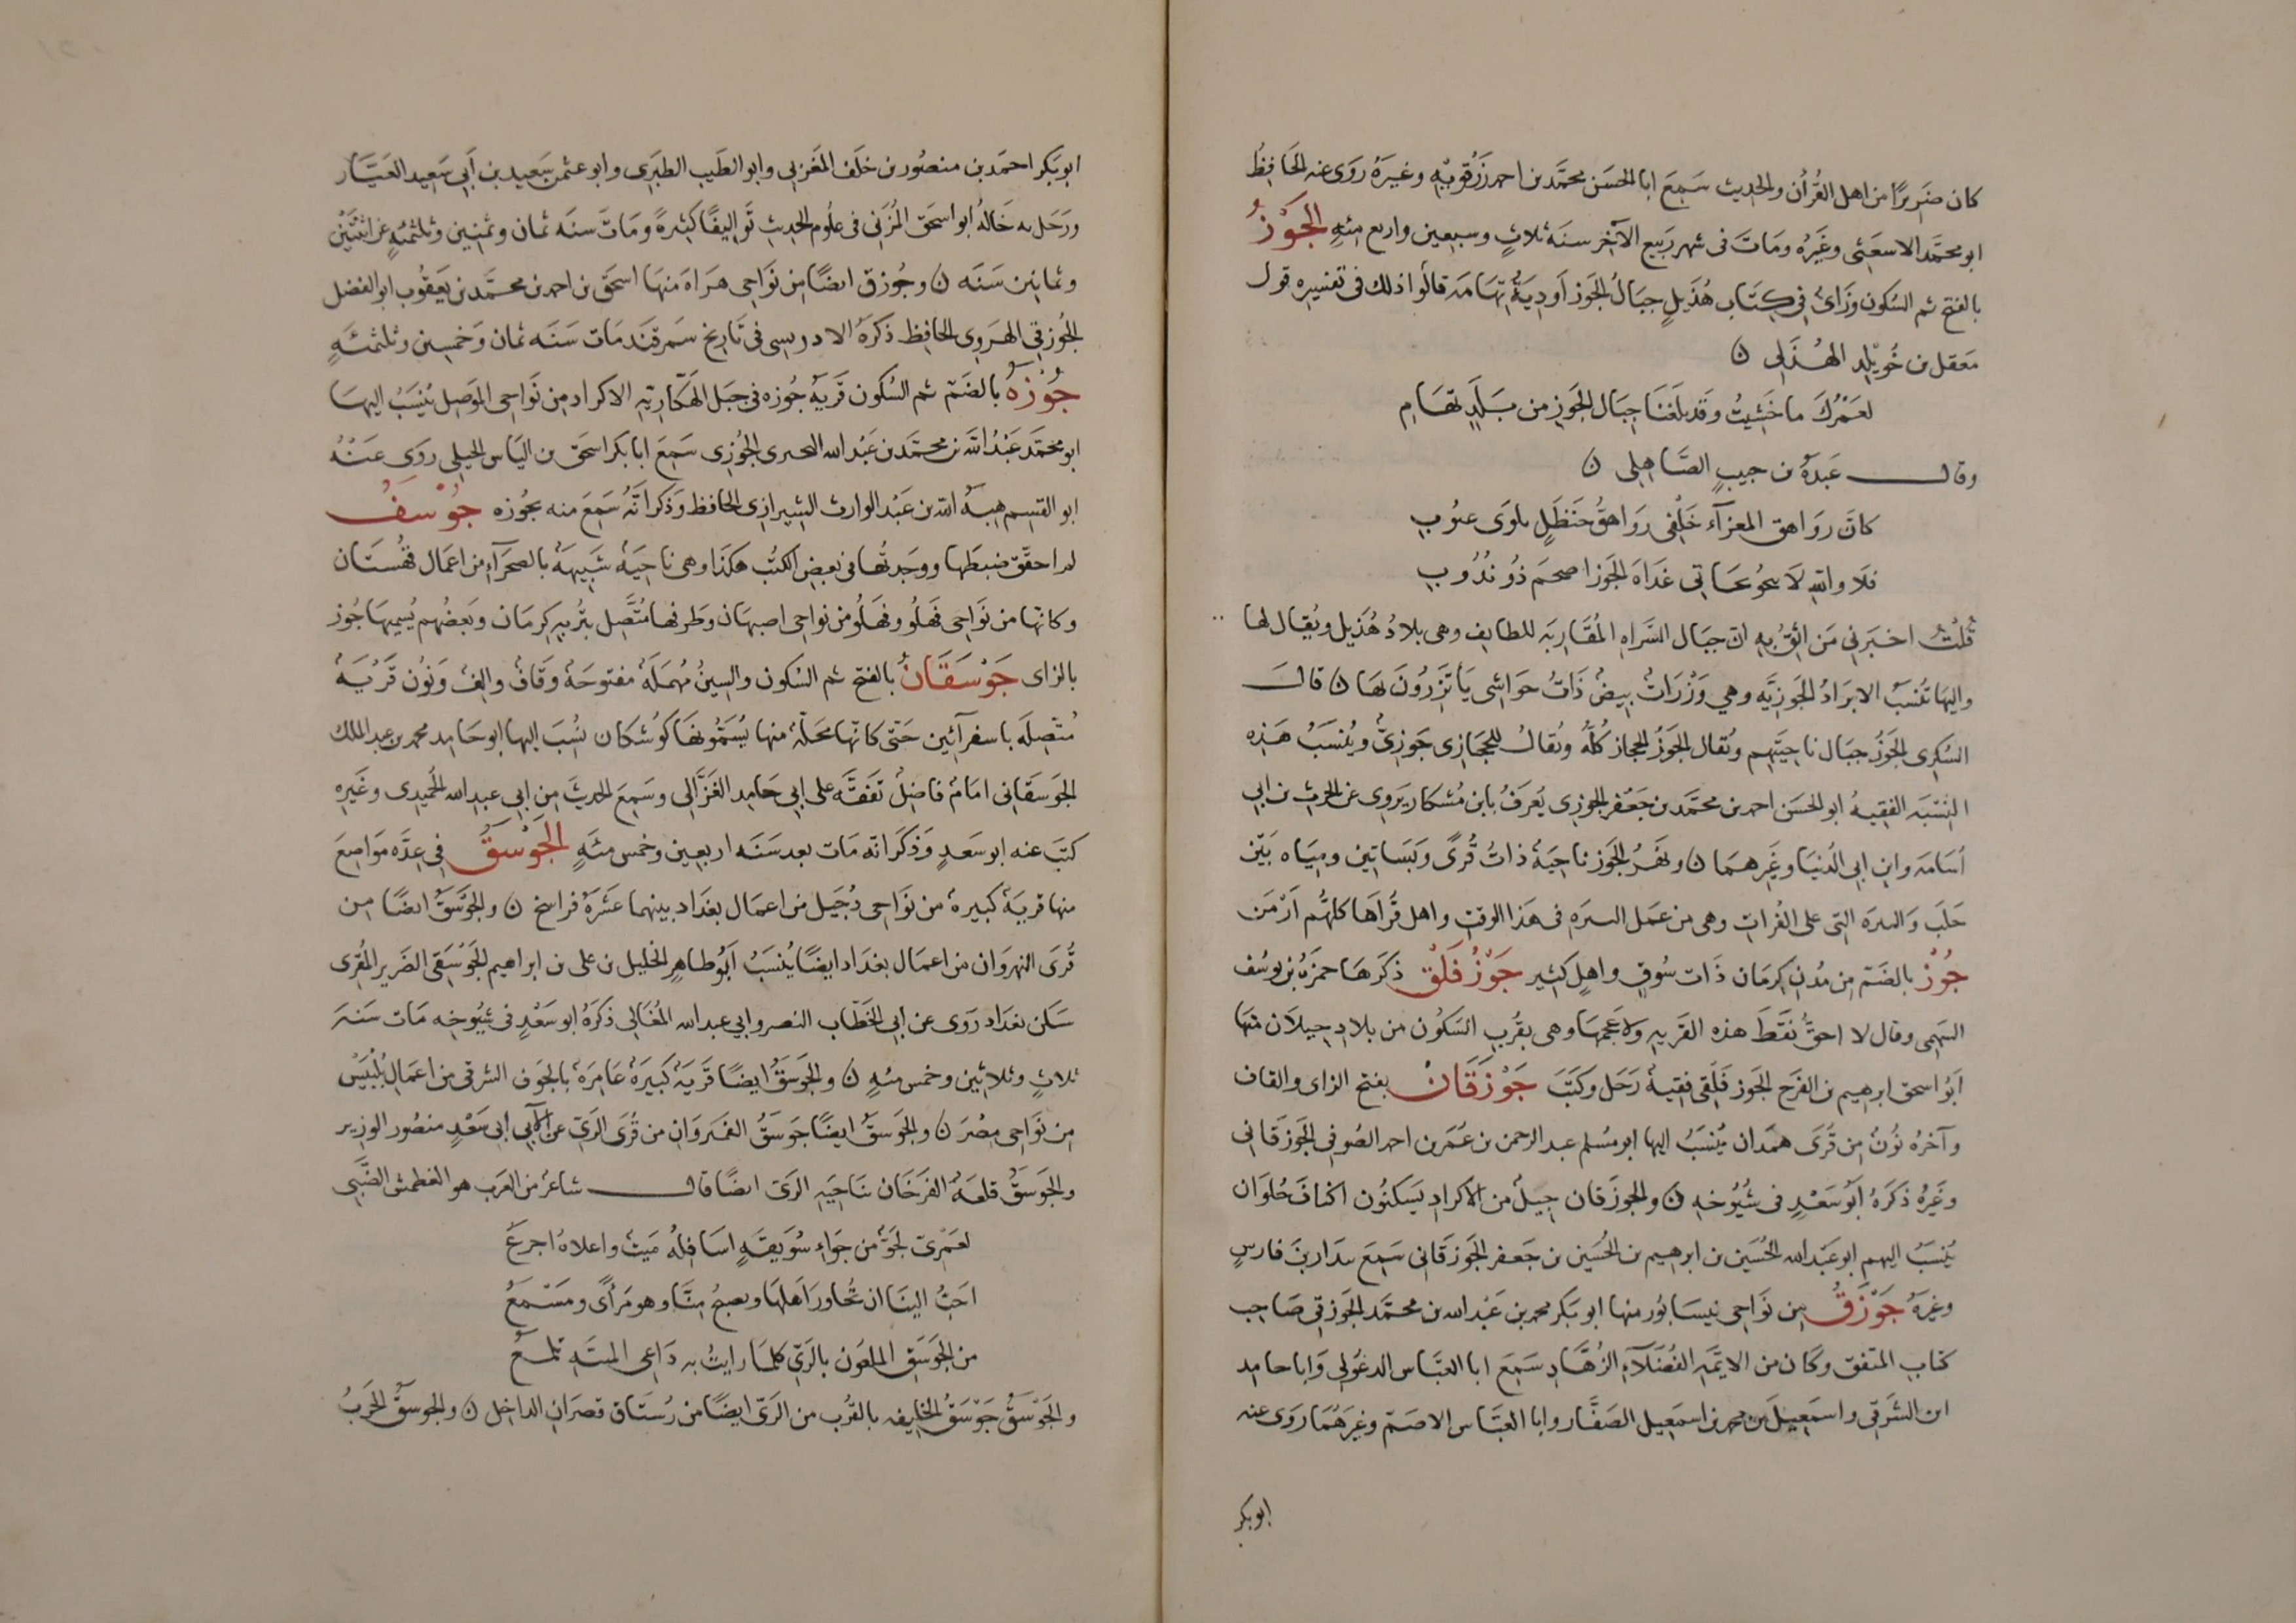 كان ضَرِيرًا من اهل القُرْآن والحَدِيث سَمِعَ ابا الحسَن محمّد بن احمد زرقويه وغيرَهُ رَوَى عنه الحَافِظُ
ابو محمّد الاسعثى وغَيرُه ومَاتَ فى شهر رَبيع الآخِر سنَة ثلاثٍ وسبعين واربع مئةٍ الجَوْزُ
بالفتح ثم السُكون وزَاىٌ فى كِتَاب هُذَيلٍ جبَالُ الجَوز اَودِيَةُ تِهَامَة قالُوا ذلك فى تفسِيره قول
مَعقل بن خُوَيْلِد الهُذَلِى ن
لعَمْرُكَ ما خَشِيتُ وَقَد بلَغنَا جِبَال الجَوزِ من بَلَدٍ تهَامِ
وقال عَبدَة بن حبيبٍ الصَّاهِلى ن
كاَنَّ رَوَاهِق المعزآء خَلْفِى رَوَاهِقُ حَنظَلٍ بلوَى عيُوبِ
فلَا واللهِ لَا ينجُو نجَاتى غَدَاةَ الجَوز اصحَم ذُو نُدُوبِ
قلتُ اخبَرنى مَن اثق به انّ جبَال السَّرَاة المُقَاربَة للطايِف وهى بلادُ هُذَيل ويُقَال لها
واليهَا تُنسَبُ الابرَادُ الجَوزيَّه وهي وَزْرَاتٌ بيضٌ ذَاتُ حوَاشِى يَأتَزِرُونَ بهَا ن قال
السُكرى الجَوزُ جبَال ناحِيَتِهم ويُقال الجَوزُ الحِجاز كلّهُ ويُقالُ للحِجَازِى جَوزِىٌّ ويُنسَبُ هَذِه
النِّسْبَه الفقيهُ ابو الحسَن احمد بن محمَّد بن جَعْفر الجوزِى يُعرَفُ بابن مُشكان يروِى عن الحرث بن ابي
اُسَامَه وابن ابى الدُنيَا وغَيرِهمَا ن ونَهرُ الجَوز ناحِيَةٌ ذاتُ قُرًى وبَسَاتِين ومِيَاه بَيْن
حَلَب وَالبيرَه التى على الفُرات وهى من عَمَل البيرَه فى هَذا الوقت واهل قُرَاهَا كلهُم اَرْمَن
جُوْزُ بالضَم مِن مُدُن كِرمَان ذَات سُوقٍ واهلٍ كثيرٍ جَوْزُفَلَق ذكَرَهَا حمزَة بن يوسُف
السَهمى وقال لا احقّ نقَط هذه القَريه ولا عَجمهَا وهى بقُربِ السَكُون من بلادِ جيلَان منهَا
اَبُو اسحق ابرهيم بن الفرَج الجَوزفَلَقى فقِيهٌ رَحَل وكتَبَ جَوْزَقَانُ بفتح الزاى والقاف
وآخرهُ نُونٌ مِن قرَى همَذان يُنسَبُ اليها ابو مُسلم عبد الرحمن بن عُمَر بن احمد الصُوفى الجَوزَقانى
وغَيرُهُ ذكَرَهُ اَبُو سَعْدٍ فى شُيُوخِه ن والجَوزَقان جيلٌ من الاكراد يَسكنُون اكنافَ حُلوَان
يُنسَبُ اليهم ابو عَبْد الله الحُسَين بن ابرهيم بن الحُسَين بن جَعفر الجَوزَقَانى سَمِعَ بندَار بن فارسٍ
وغيرَهُ جَوْزَقُ مِن نَوَاحى نيسَابُور منها ابو بَكر محمد بن عَبْد الله بن محمَّد الجَوزَقى صَاحِب
كتاب المتفق وكَان من الائمَّة الفُضَلَآء الزُهَّادِ سَمِعَ ابا العبَّاس الدغُولى وَابا حامد
ابن الشَرْقى واسمَعِيل بن محمد بن اسمعِيل الصَفَّار وابا العبَّاس الاصَمّ وغيرَهُمَا رَوَى عنه
ابوبكر
ابو بَكر احمَد بن منصُور بن خلَف المغَربي وابو الطَيب الطبَرِى وابو عثمن سَعِيد بن اَبي سَعِيد العيَّار
ورَحَل به خَالهُ ابو اسحَق المُزَنى فى علُوم الحَديث تَوَاليفًا كثيرَةً ومَاتَ سنَة ثمان وثمنين وثلثمئةٍ عن اثنتَيْن
وثمانين سَنَه ن وجُوزق ايضًا مِن نَوَاحِى هَرَاة منهَا اسحَق بن احمد بن محمَّد بن يَعقُوب ابو الفضل
الجُوزقى الهرَوِى الحافِظ ذكَرَهُ الادريسى فى تَاريخ سَمرقَند مَات سَنَه ثمان وخَمسِين وثلثمئَةٍ
جُوْزَهُ بالضَمّ ثم السُكون قَريَةُ جُوزه فى جبَل الهَكّاريّة الاكراد مِن نَوَاحِى الموَصِل يُنسَبُ اليهَا
ابو محمَّد عَبْدُ الله بن محمَّد بن عَبْد الله الجُوزى سَمِعَ ابا بَكر اسحَق بن اليَاس الجيلى روَى عَنْهُ
ابو القسِم هِبَة الله بن عَبْد الوارث الشيرازى الحافظ وَذكَر اَنَّهُ سَمِعَ منه بجُوزَه جُوْسَفُ
لم احقّق ضبطَها ووجَدتُها فى بعضِ الكُتُب هكَذَا وهى ناحِيَةٌ شَبيهَةٌ بالصحرَآء من اعمَال قهُستَان
وكانّها من نَوَاحِى فَهلُو وفَهلُو من نواحِى اصبهَان وطَرفها مُتَّصِل ببَرِّيه كِرمَان وبَعضُهم يُسمِيهَا جُوز
بالزاى جَوْسَقَانُ بالفتح ثم السُكون والسِينُ مُهمَلَةٌ مفتوحَةٌ وقَافٌ والِفٌ ونُون قَرْيَةٌ
مُتّصِلَه باسفرآئين حَتّى كانّها محَلّةٌ منها يُسَمُّونهَا كوُشكان نُسِبَ اليها ابو حَامِد محمد بن عبد الملك
الجَوسَقانى امَامٌ فاضِلٌ تفَقَّه على ابى حَامد الغَزَّالى وسَمِعَ الحديثَ مِن ابى عبد الله الحُميدِى وغَيرِه
كتَبَ عنه ابو سَعدٍ وَذكَر انه مَات بعد سَنَه اربعِين وخمس مئةٍ الجَوْسَقُ فى عِدَّه موَاضِعَ
منها قريَةٌ كبيرة من نوَاحى دُجَيل من اعمَال بغدَاد بينهما عشَرَة فراسخ ن والجَوسَقُ ايضًا مِن
قُرَى النهرَوان من اعمَال بغدَاد ايضًا يُنسَبُ اَبُو طاهِر الخليل بن على بن ابراهيم الجَوْسَقِى الضَرِير المُقرِى
سَكَن بغدَاد رَوَى عن ابى الخَطّاب النصر وابى عبد الله المغَالى ذكَرهُ ابو سَعْدٍ فى شيُوخِه مَات سَنَة
ثلاثٍ وثلاثين وخمس مئةٍ ن والجَوسَقُ ايضًا قَريَةٌ كَبيرَةٌ عَامِرَةٌ بالجَوف الشرقى من اعمَال بُلْبَيْس
مِن نوَاحِى مِصْرَ ن والجَوسَقُ ايضًا جَوسَقُ من قُرَى الرَىّ عن الآبى ابى سَعْدٍ منصُور الوزِير
والجَوسَقُ قلعَةُ الفرَخَان بنَاحِيَةِ الرَىّ ايضًا قال شاعرٌ من العَرَب هو الغطمش الضَّبِّى
لعَمْرِىَ لجَوٌّ من جوَاء سُوَيقَةٍ اسَافِلُه مَيثٌ واعلاهُ اجرعُ
احَبُّ الينَا ان نُجَاور اَهلهَا ويصبحُ منَّا وهو مَرأًى ومَسْمعُ
من الجَوسَقِ الملعُون بالرَىّ كلمَا رايتُ به دَاعِى المنيَّة تلمعُ
والجَوْسَقُ جَوْسَقُ الخليفه بالقُرْب من الرَىّ ايضًا من رُستَاق قصرَان الداخِل ن والجوسَقُ الخَرِبُ